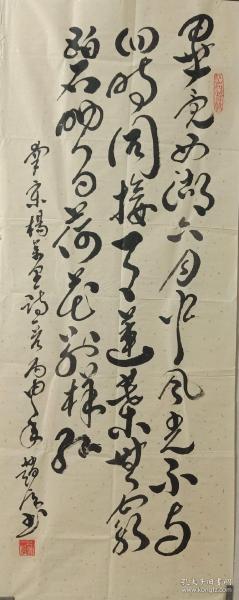 畢竟西湖六月中風光不與
四時同接天蓮葉無窮
碧映日荷花別樣紅
宋楊萬里詩 丙申年 趙 書
孔夫子旧书网